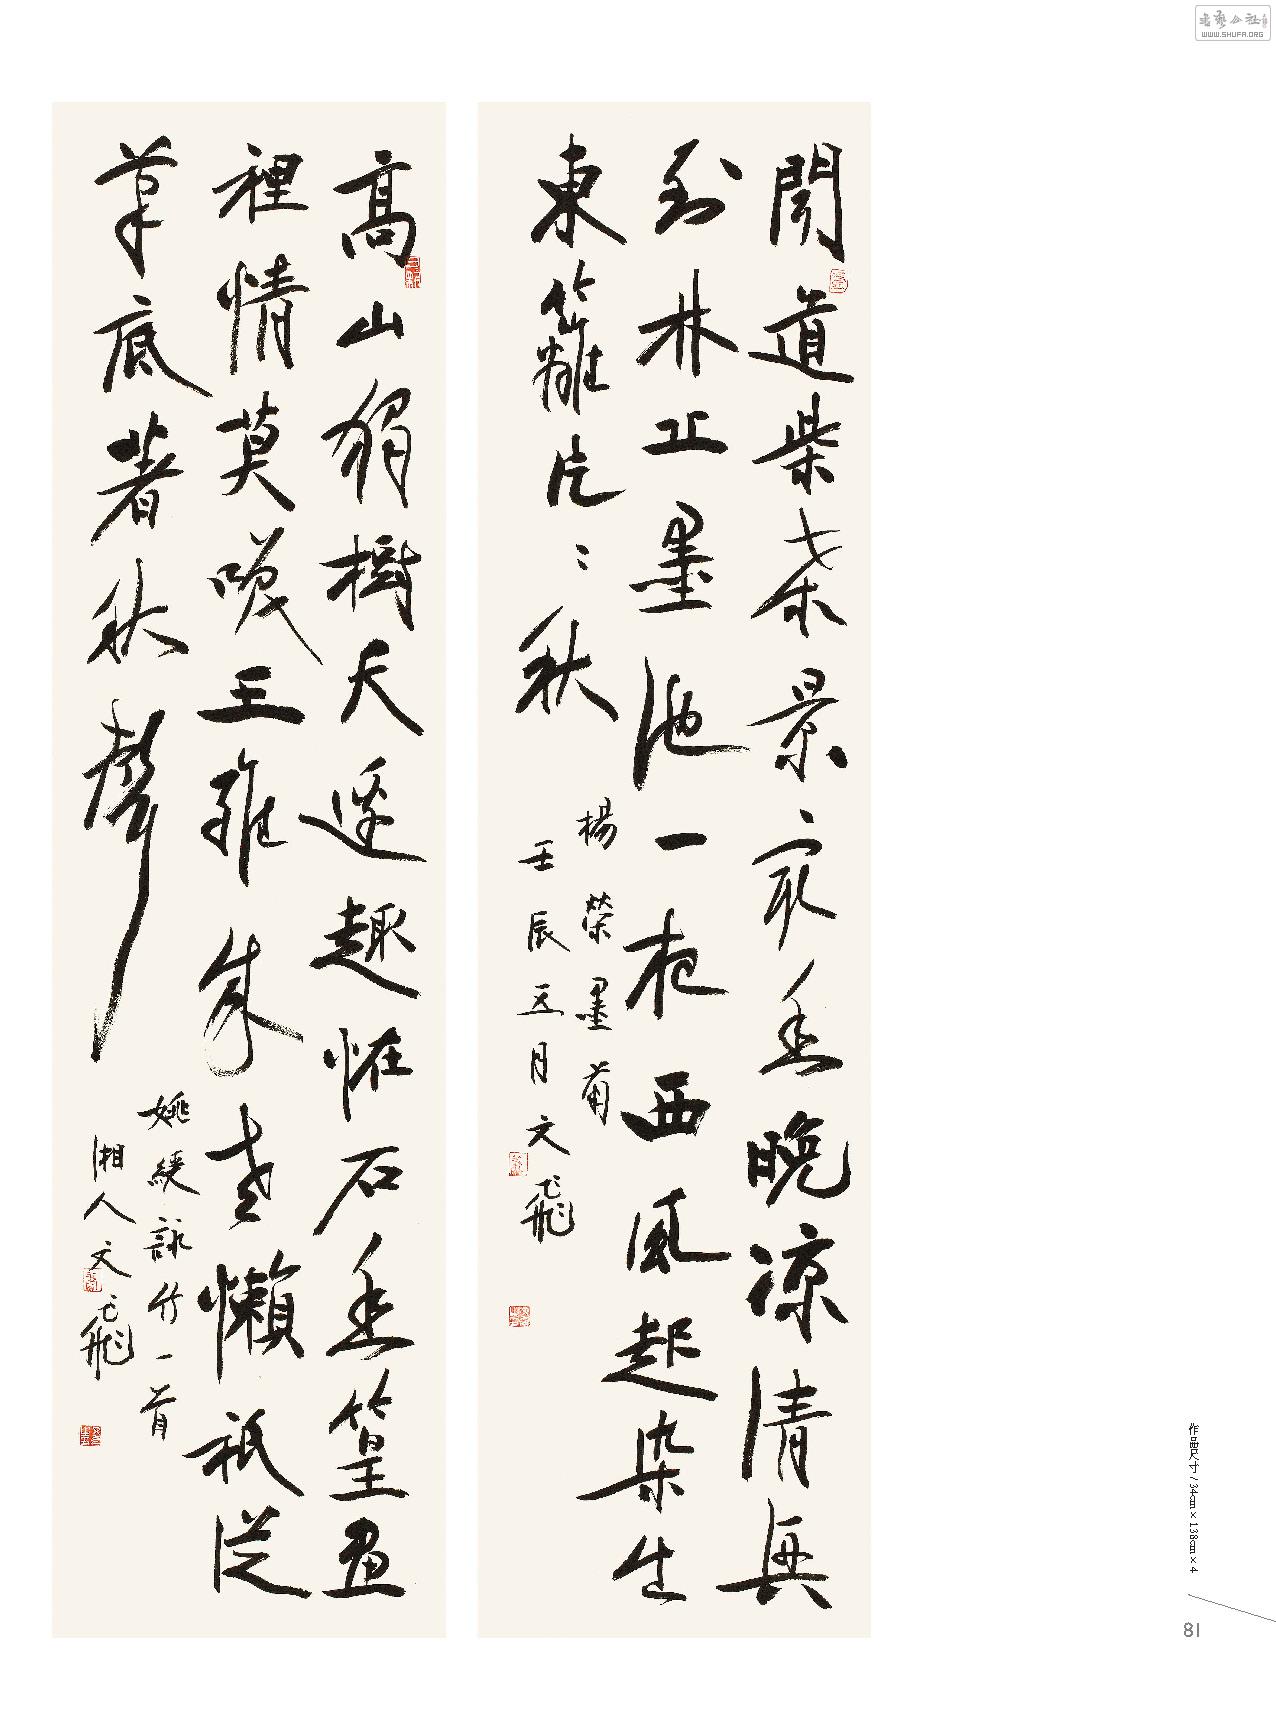 聞道柴桑景最幽晚涼清興
到林丘墨池一夜西風起染生
東籬片片秋
楊榮墨菊
壬辰五月文飛
高山獨樹天邊趣怪石幽篁畫
裡情莫嘆王維成老懶祇從
筆底著秋聲
姚綬詠竹一首
湘人文飛
作品尺寸/34cm×138cm×4
81
書藝公社
WWW.SHUFA.ORG